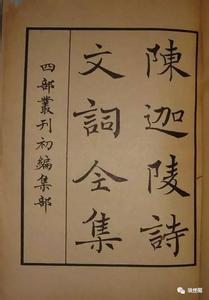 陳迦陵詩
文詞全集
四部叢刊初編集部